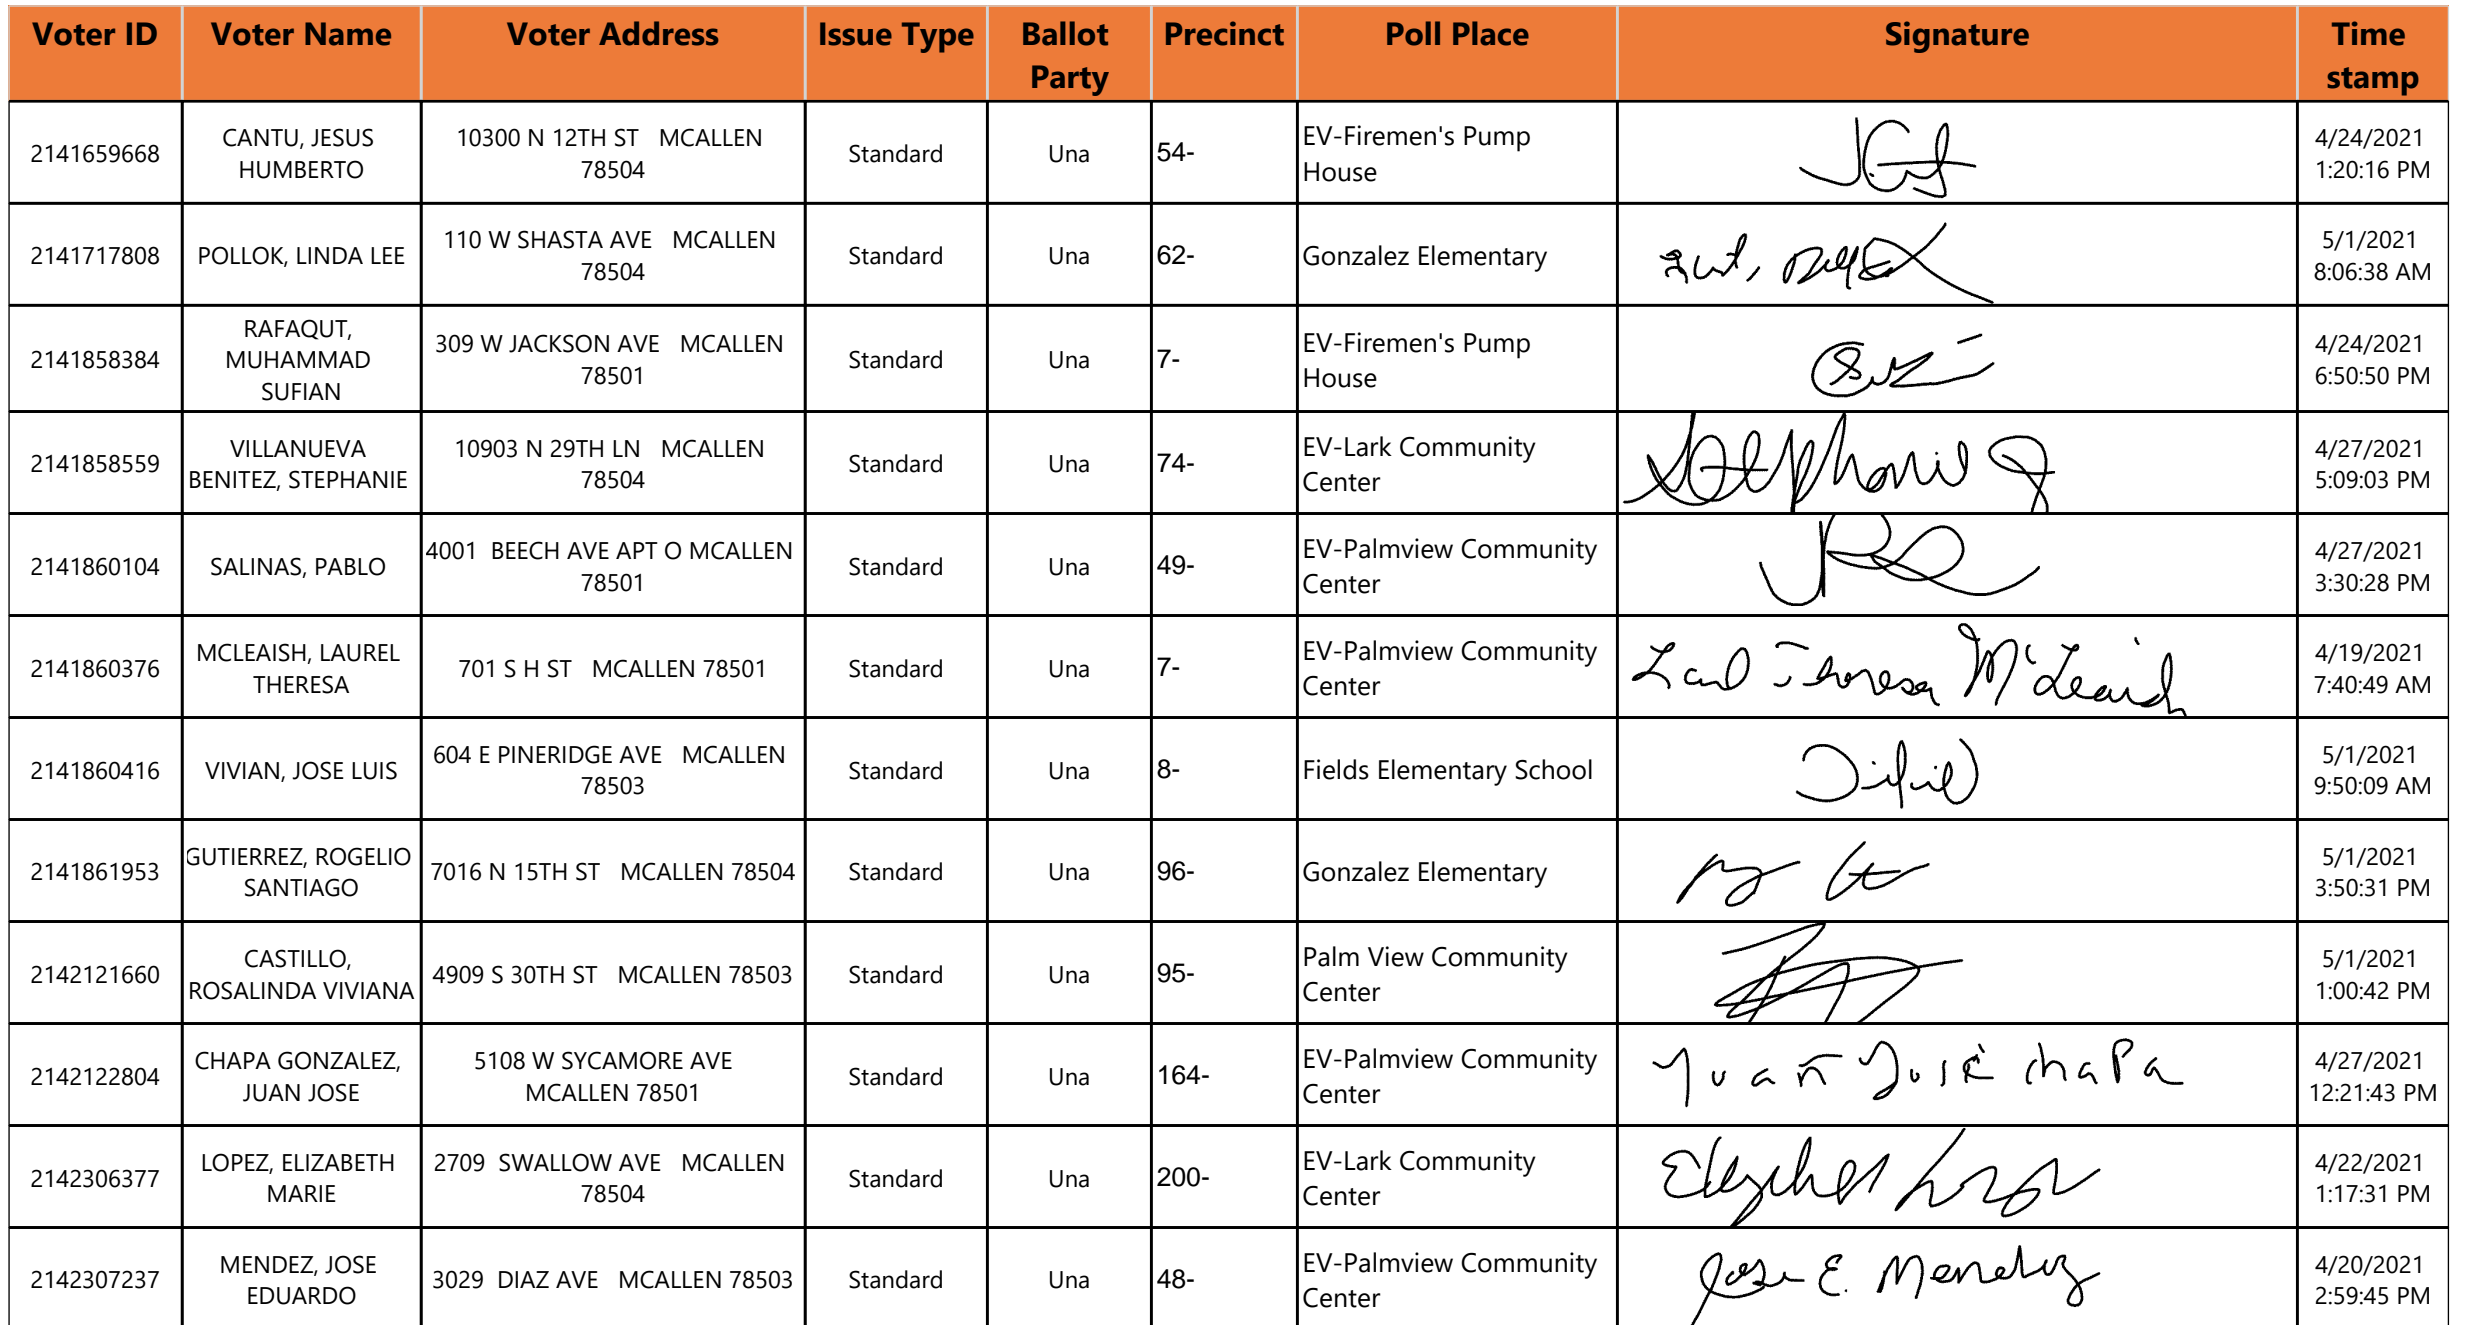 Voter ID Voter Name Voter Address Issue Type Ballot Party Precinct Poll Place Signature Time stamp
2141659668 CANTU, JESUS HUMBERTO 10300 N 12TH ST MCALLEN 78504 Standard Una 54- EV-Firemen's Pump House 4/24/2021 1:20:16 PM
2141717808 POLLOK, LINDA LEE 110 W SHASTA AVE MCALLEN 78504 Standard Una 62- Gonzalez Elementary 5/1/2021 8:06:38 AM
2141858384 RAFAQUT, MUHAMMAD SUFIAN 309 W JACKSON AVE MCALLEN 78501 Standard Una 7- EV-Firemen's Pump House 4/24/2021 6:50:50 PM
2141858559 VILLANUEVA BENITEZ, STEPHANIE 10903 N 29TH LN MCALLEN 78504 Standard Una 74- EV-Lark Community Center Stephanie 4/27/2021 5:09:03 PM
2141860104 SALINAS, PABLO 4001 BEECH AVE APT O MCALLEN 78501 Standard Una 49- EV-Palmview Community Center 4/27/2021 3:30:28 PM
2141860376 MCLEAISH, LAUREL THERESA 701 S H ST MCALLEN 78501 Standard Una 7- EV-Palmview Community Center Theresa McLeaish 4/19/2021 7:40:49 AM
2141860416 VIVIAN, JOSE LUIS 604 E PINERIDGE AVE MCALLEN 78503 Standard Una 8- Fields Elementary School 5/1/2021 9:50:09 AM
2141861953 GUTIERREZ, ROGELIO SANTIAGO 7016 N 15TH ST MCALLEN 78504 Standard Una 96- Gonzalez Elementary 5/1/2021 3:50:31 PM
2142121660 CASTILLO, ROSALINDA VIVIANA 4909 S 30TH ST MCALLEN 78503 Standard Una 95- Palm View Community Center 5/1/2021 1:00:42 PM
2142122804 CHAPA GONZALEZ, JUAN JOSE 5108 W SYCAMORE AVE MCALLEN 78501 Standard Una 164- EV-Palmview Community Center Juan José Chapa 4/27/2021 12:21:43 PM
2142306377 LOPEZ, ELIZABETH MARIE 2709 SWALLOW AVE MCALLEN 78504 Standard Una 200- EV-Lark Community Center 4/22/2021 1:17:31 PM
2142307237 MENDEZ, JOSE EDUARDO 3029 DIAZ AVE MCALLEN 78503 Standard Una 48- EV-Palmview Community Center Jose E. Mendez 4/20/2021 2:59:45 PM